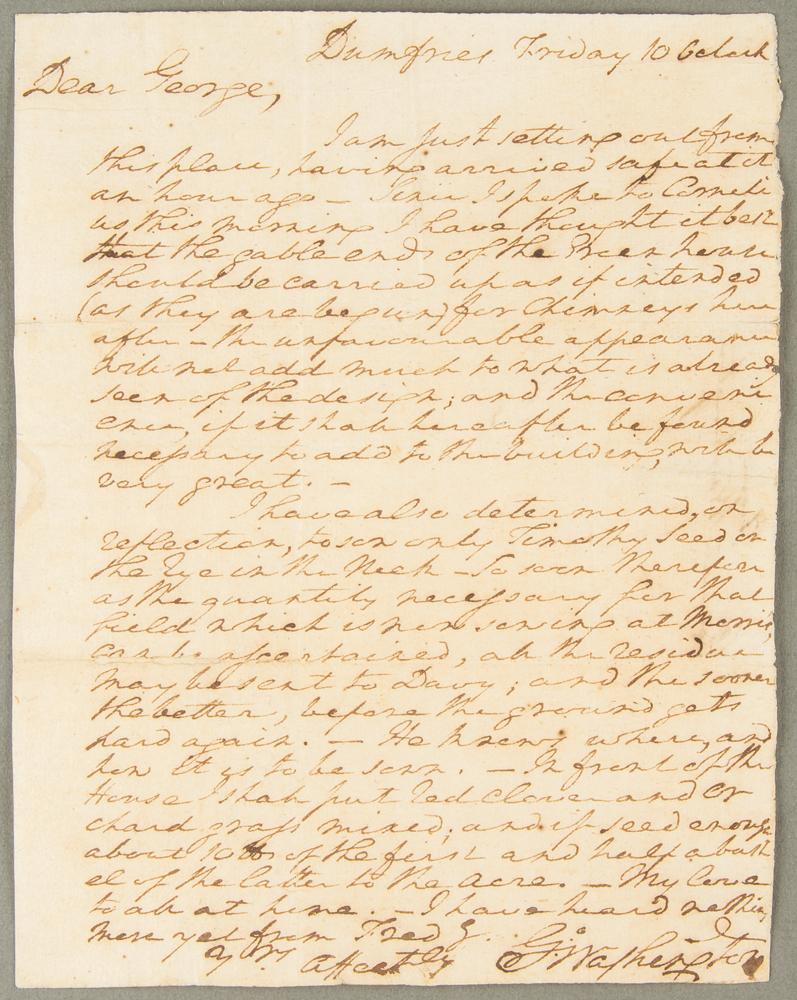 Dumfries Friday 10 Oclock
Dear George,
I am just setting out from
this place, having arrived safe at it
an hour ago — Since I spoke to Corneli
us this morning I have thought it best
that the gable ends of the Green house
should be carried up as if intended
(as they are begun) for Chimneys here
after — the unfavourable appearance
will not add much to what is already
seen of the design; and the conveni
ence, if it shall hereafter be found
necessary to add to the building, will be
very great. —
I have also determined, on
reflection, to sow only Timothy Seed on
the Rye in the Neck — So soon therefore
as the quantity necessary for that
field which is now sowing at Morris's,
can be ascertained, all the residue
may be sent to Davy; and the sooner
the better, before the ground gets
hard again. — He knows where, and
how it is to be sown. — In front of the
House I shall put red clover and or
chard grass mixed; and if seed enough
about 10 lbs of the first and half a bush
el of the latter to the acre. — My love
to all at home. — I have heard nothing
more yet from Fred g.
Yrs affectly Go: Washington